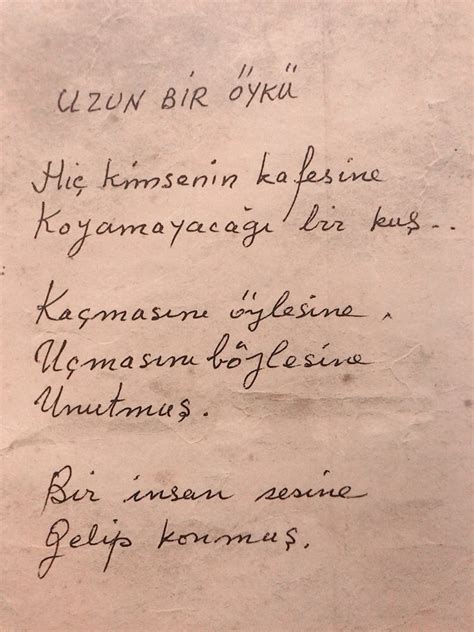 UZUN BİR ÖYKÜ
Hiç kimsenin kafesine
Koyamayacağı bir kuş..
Kaçmasını öylesine,
Uçmasını böylesine
Unutmuş.
Bir insan sesine
Gelip konmuş.